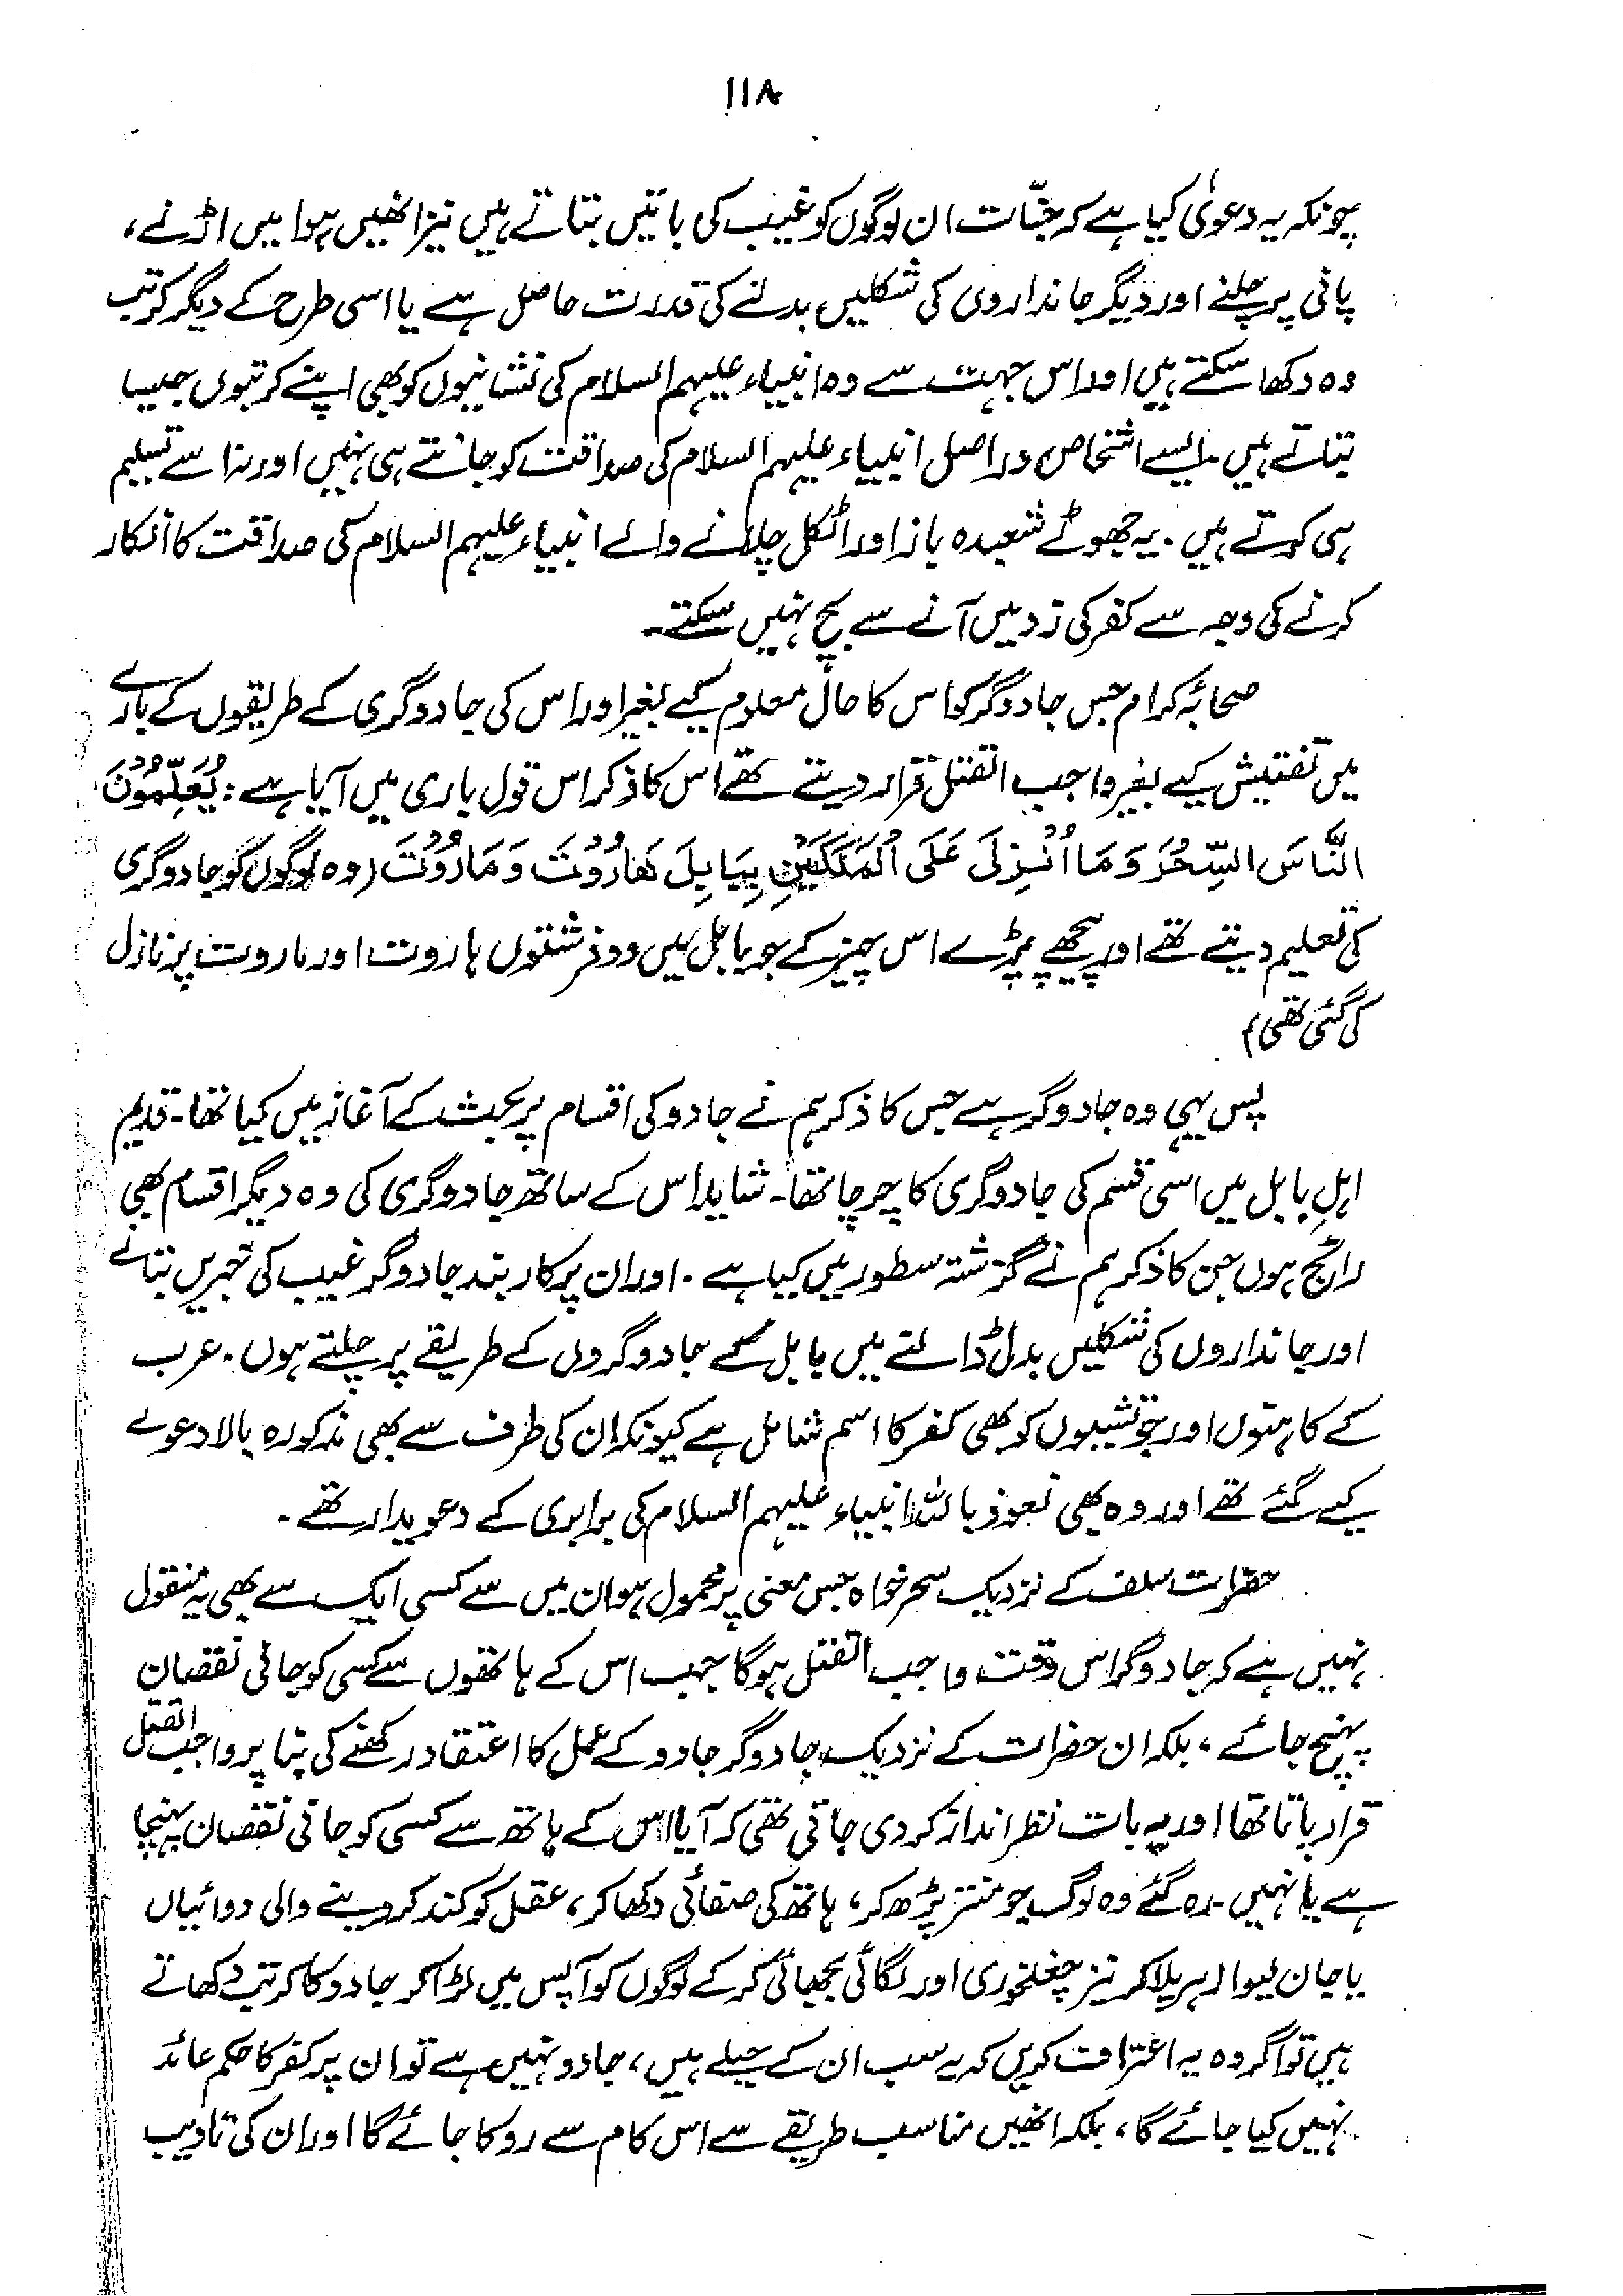 ۱۱۸
چونکہ یہ دعویٰ کیا ہے کہ جنّات ان لوگوں کو غیب کی باتیں بتاتے ہیں نیز انھیں ہوا میں اڑنے،
پانی پر چلنے اور دیگر جانداروں کی شکلیں بدلنے کی قدرت حاصل ہے یا اسی طرح کے دیگر کرتب
وہ دکھا سکتے ہیں اور اس جہت سے وہ انبیاء علیہم السلام کی نشانیوں کو بھی اپنے کرتبوں جیسا
بتاتے ہیں۔ ایسے اشخاص دراصل انبیاء علیہم السلام کی صداقت کو جانتے ہی نہیں اور نہ اسے تسلیم
ہی کرتے ہیں۔ یہ جھوٹے شعبدہ باز اور اٹکل چلانے والے انبیاء علیہم السلام کی صداقت کا انکار
کرنے کی وجہ سے کفر کی زد میں آنے سے بچ نہیں سکتے۔
صحابہ کرام جس جادوگر کو اس کا حال معلوم کیے بغیر اور اس کی جادوگری کے طریقوں کے بارے
میں تفتیش کیے بغیر واجب القتل قرار دیتے تھے اس کا ذکر اس قول باری میں آیا ہے: یُعَلِّمُوْنَ
النَّاسَ السِّحْرَ وَمَا اُنْزِلَ عَلَی الْمَلَکَیْنِ بِبَابِلَ ھَارُوْتَ وَمَارُوْتَ (وہ لوگوں کو جادوگری
کی تعلیم دیتے تھے اور پیچھے پڑے اس چیز کے جو بابل میں دو فرشتوں ہاروت اور ماروت پر نازل
کی گئی تھی)
پس یہی وہ جادوگر ہے جس کا ذکر ہم نے جادو کی اقسام پر بحث کے آغاز میں کیا تھا۔ قدیم
اہلِ بابل میں اسی قسم کی جادوگری کا چرچا تھا۔ شاید اس کے ساتھ جادوگری کی وہ دیگر اقسام بھی
رائج ہوں جن کا ذکر ہم نے گزشتہ سطور میں کیا ہے۔ اور ان پر کاربند جادوگر غیب کی خبریں بتانے
اور جانداروں کی شکلیں بدل ڈالنے میں بابل کے جادوگروں کے طریقے پر چلتے ہوں۔ عرب
کے کاہنوں اور جوتشیوں کو بھی کفر کا اسم شامل ہے کیونکہ ان کی طرف سے بھی مذکورہ بالا دعوے
کیے گئے تھے اور وہ بھی نعوذ باللہ انبیاء علیہم السلام کی برابری کے دعویدار تھے۔
حضرات سلف کے نزدیک سحر خواہ جس معنی پر محمول ہو ان میں سے کسی ایک سے بھی یہ منقول
نہیں ہے کہ جادوگر اس وقت واجب القتل ہوگا جب اس کے ہاتھوں سے کسی کو جانی نقصان
پہنچ جائے، بلکہ ان حضرات کے نزدیک جادوگر جادو کے عمل کا اعتقاد رکھنے کی بنا پر واجب القتل
قرار پاتا تھا اور یہ بات نظر انداز کر دی جاتی تھی کہ آیا اس کے ہاتھ سے کسی کو جانی نقصان پہنچا
ہے یا نہیں۔ رہ گئے وہ لوگ جو منتر پڑھ کر، ہاتھ کی صفائی دکھا کر، عقل کو کند کر دینے والی دوائیاں
یا جان لیوا زہر پلا کر نیز چغلخوری اور لگائی بجھائی کر کے لوگوں کو آپس میں لڑا کر جادو کا کرتب دکھاتے
ہیں تو اگر وہ یہ اعتراف کریں کہ یہ سب ان کے حیلے ہیں، جادو نہیں ہے تو ان پر کفر کا حکم عائد
نہیں کیا جائے گا، بلکہ انھیں مناسب طریقے سے اس کام سے روکا جائے گا اور ان کی تادیب